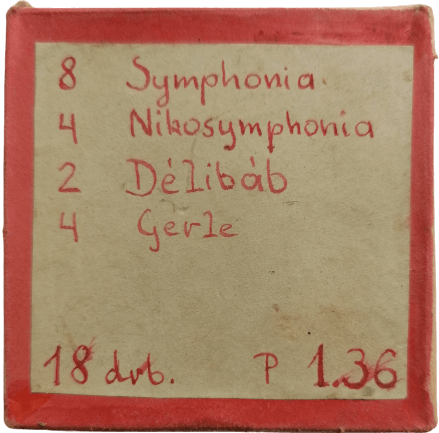 8 Symphonia
4 Nikosymphonia
2 Délibáb
4 Gerle
18 drb. P 1.36